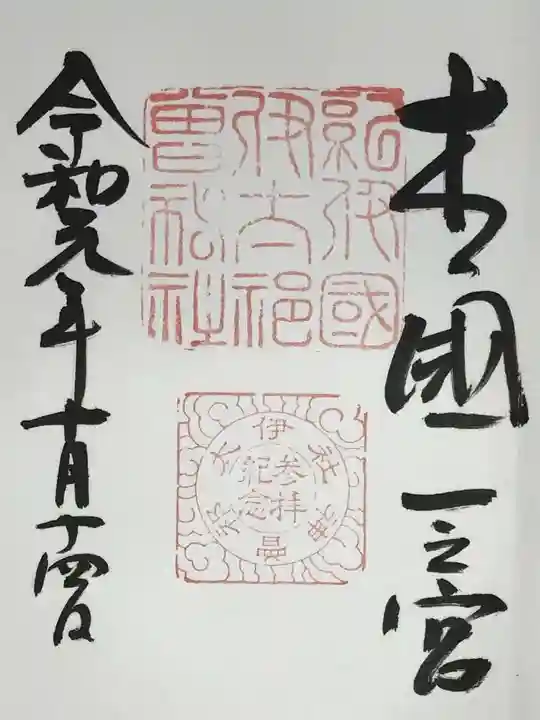 木國一之宮
紀伊國
伊太祁
曽神社
伊太祁曽神社
参拝
紀念
令和元年十月十四日